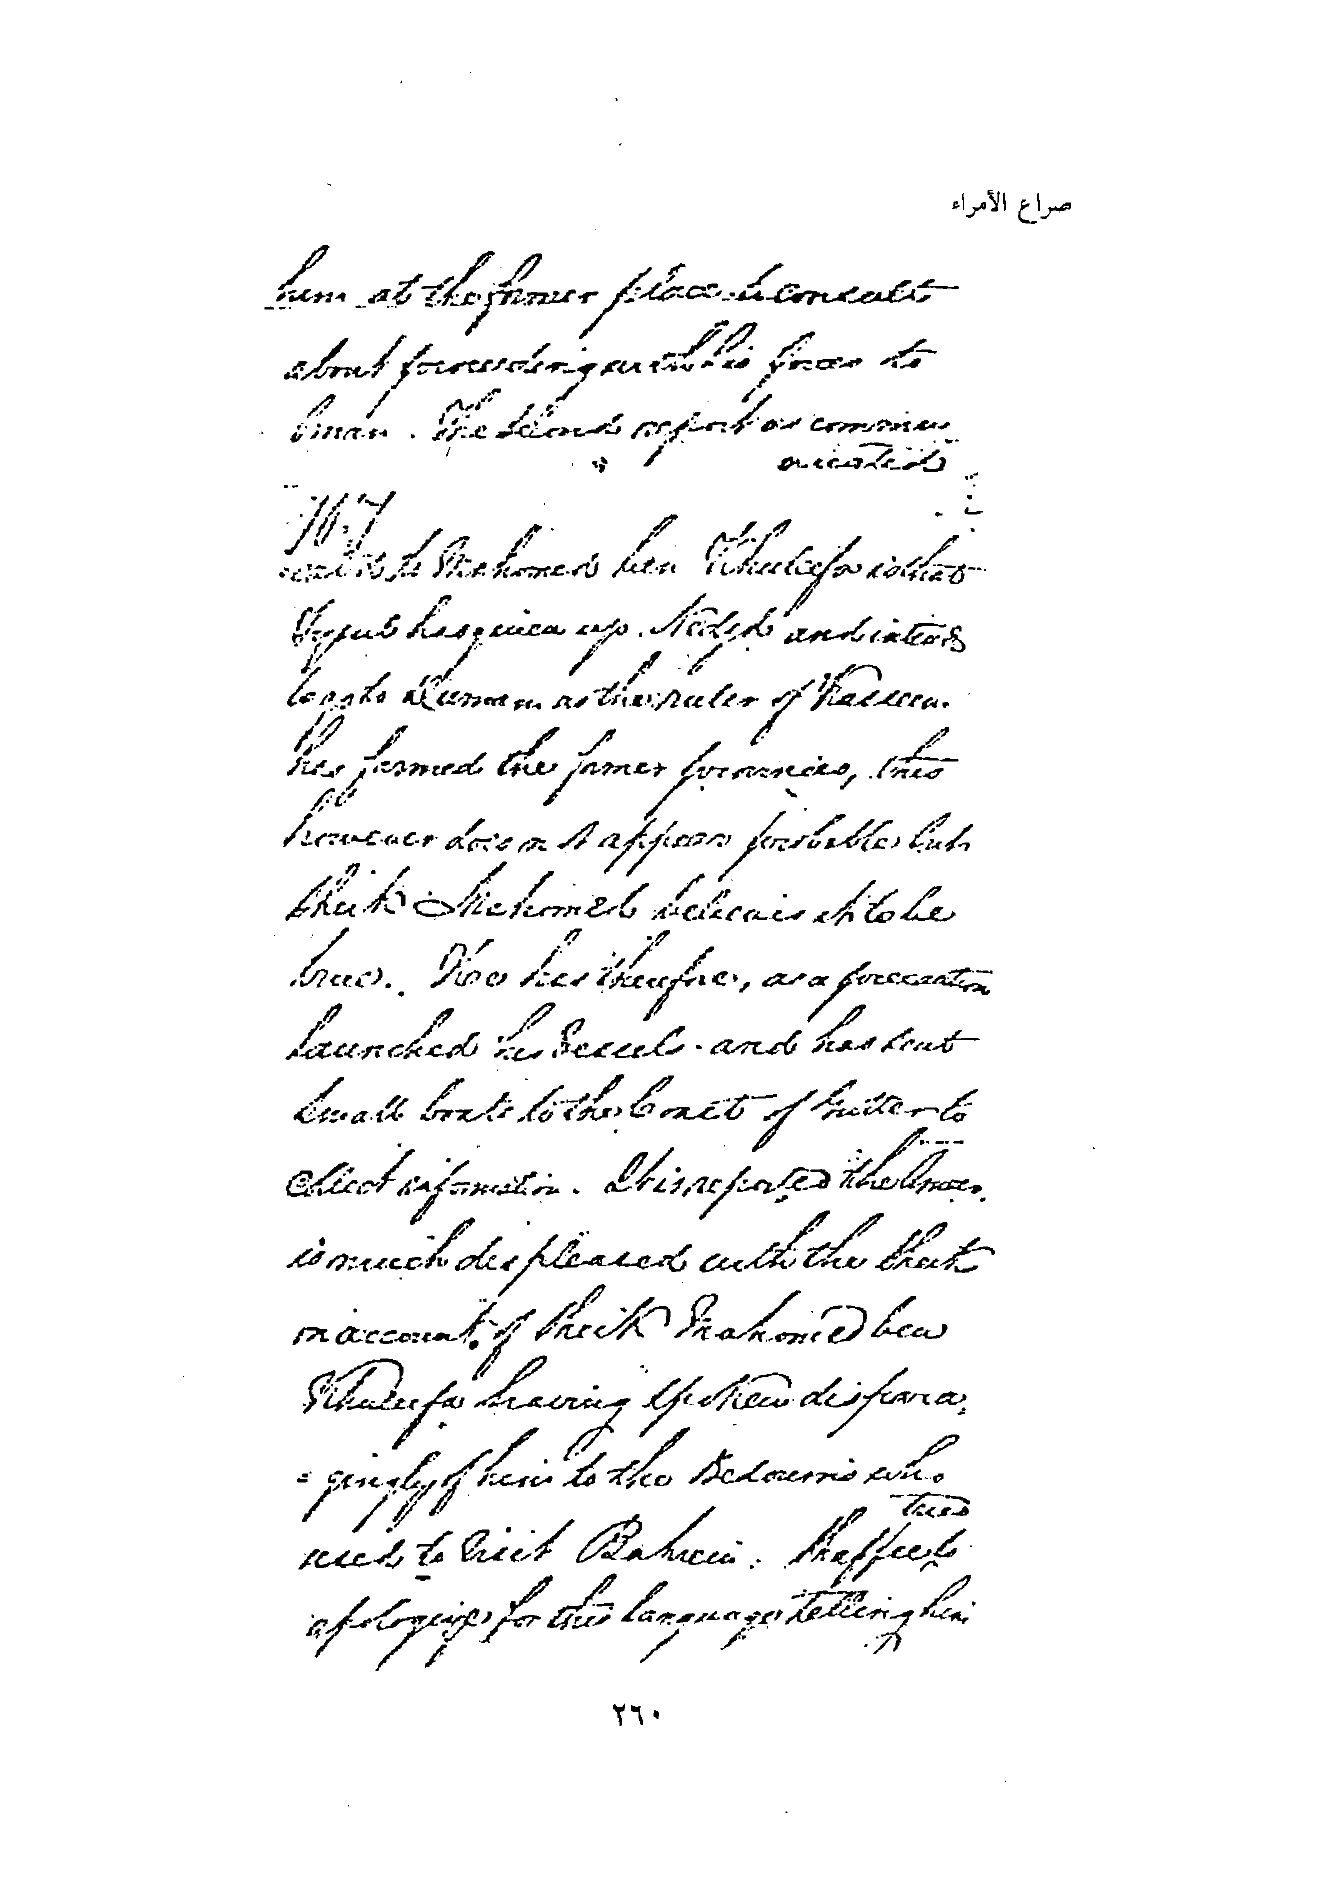 صراع الأمراء
him at the former place to consult
about proceeding with his forces to
Oman. The second report as commu
nicated
767
to Mahomed ben Khuleefa is that
Fysul has given up Nedjd and intends
to go to as the ruler of
has farmed the former provinces, this
however does not appear probable but
Sheik Mahomed believes it to be
true. He has therefore, as a precaution
launched his Vessels and has sent
small boats to the Coast of Gutter to
collect information. It is reported the Ameer
is much displeased with the Sheik
on account of Sheik Mahomed ben
Khuleefa having spoken dispara,
= gingly of him to the Bedouins who
tried
used to visit Bahrein.
apologize for this language telling him
٢٦٠